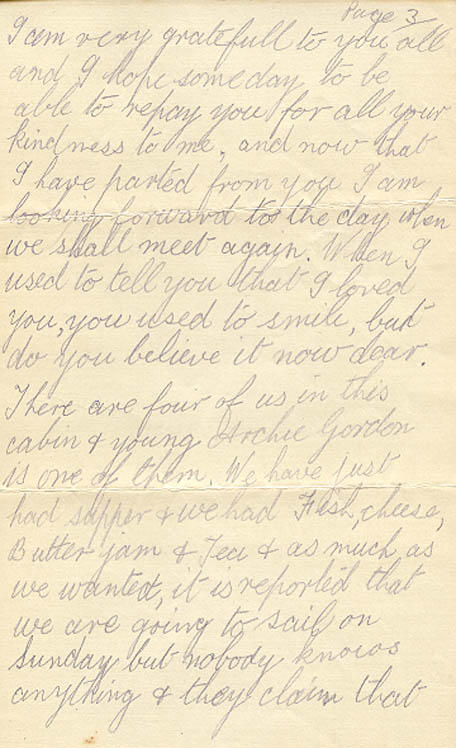 Page 3
I am very gratefull to you all
and I hope someday to be
able to repay you for all your
kindness to me, and now that
I have parted from you I am
looking forward to the day when
we shall meet again. When I
used to tell you that I loved
you, you used to smile, but
do you believe it now dear.
There are four of us in this
cabin & young Archie Gordon
is one of them. We have just
had supper & we had Fish, cheese,
Butter jam & Tea & as much as
we wanted, it is reported that
we are going to sail on
Sunday but nobody knows
anything & they claim that